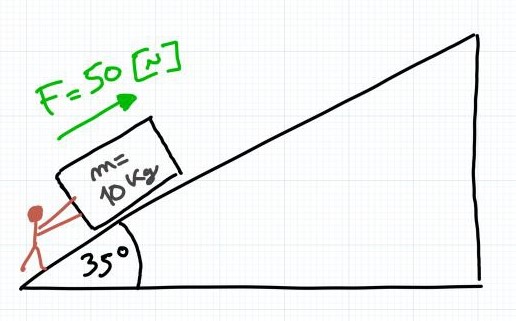 F=50 [N]
m=
10 Kg
35°